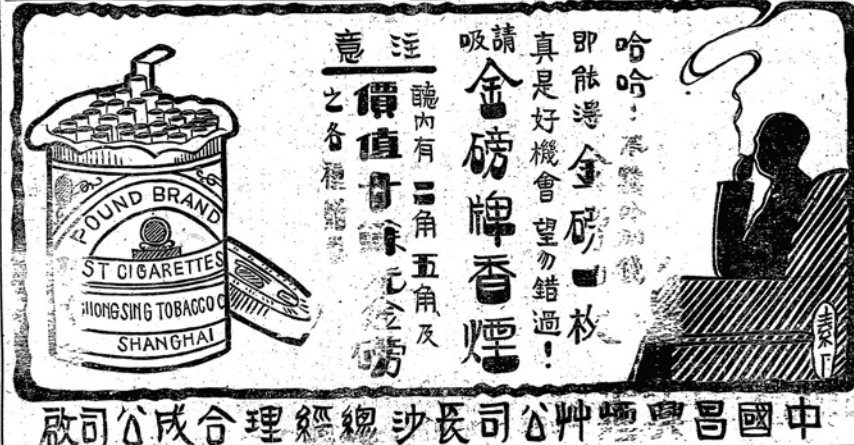 哈哈！
即能得金磅一枚
真是好機會 望勿錯過！
請吸
金磅牌香煙
注意
聽內有二角五角及
價值十餘元金磅
之各種
POUND BRAND
ST CIGARETTES
HONGSING TOBACCO C
SHANGHAI
中國昌興煙艸公司長沙總經理合成公司啟